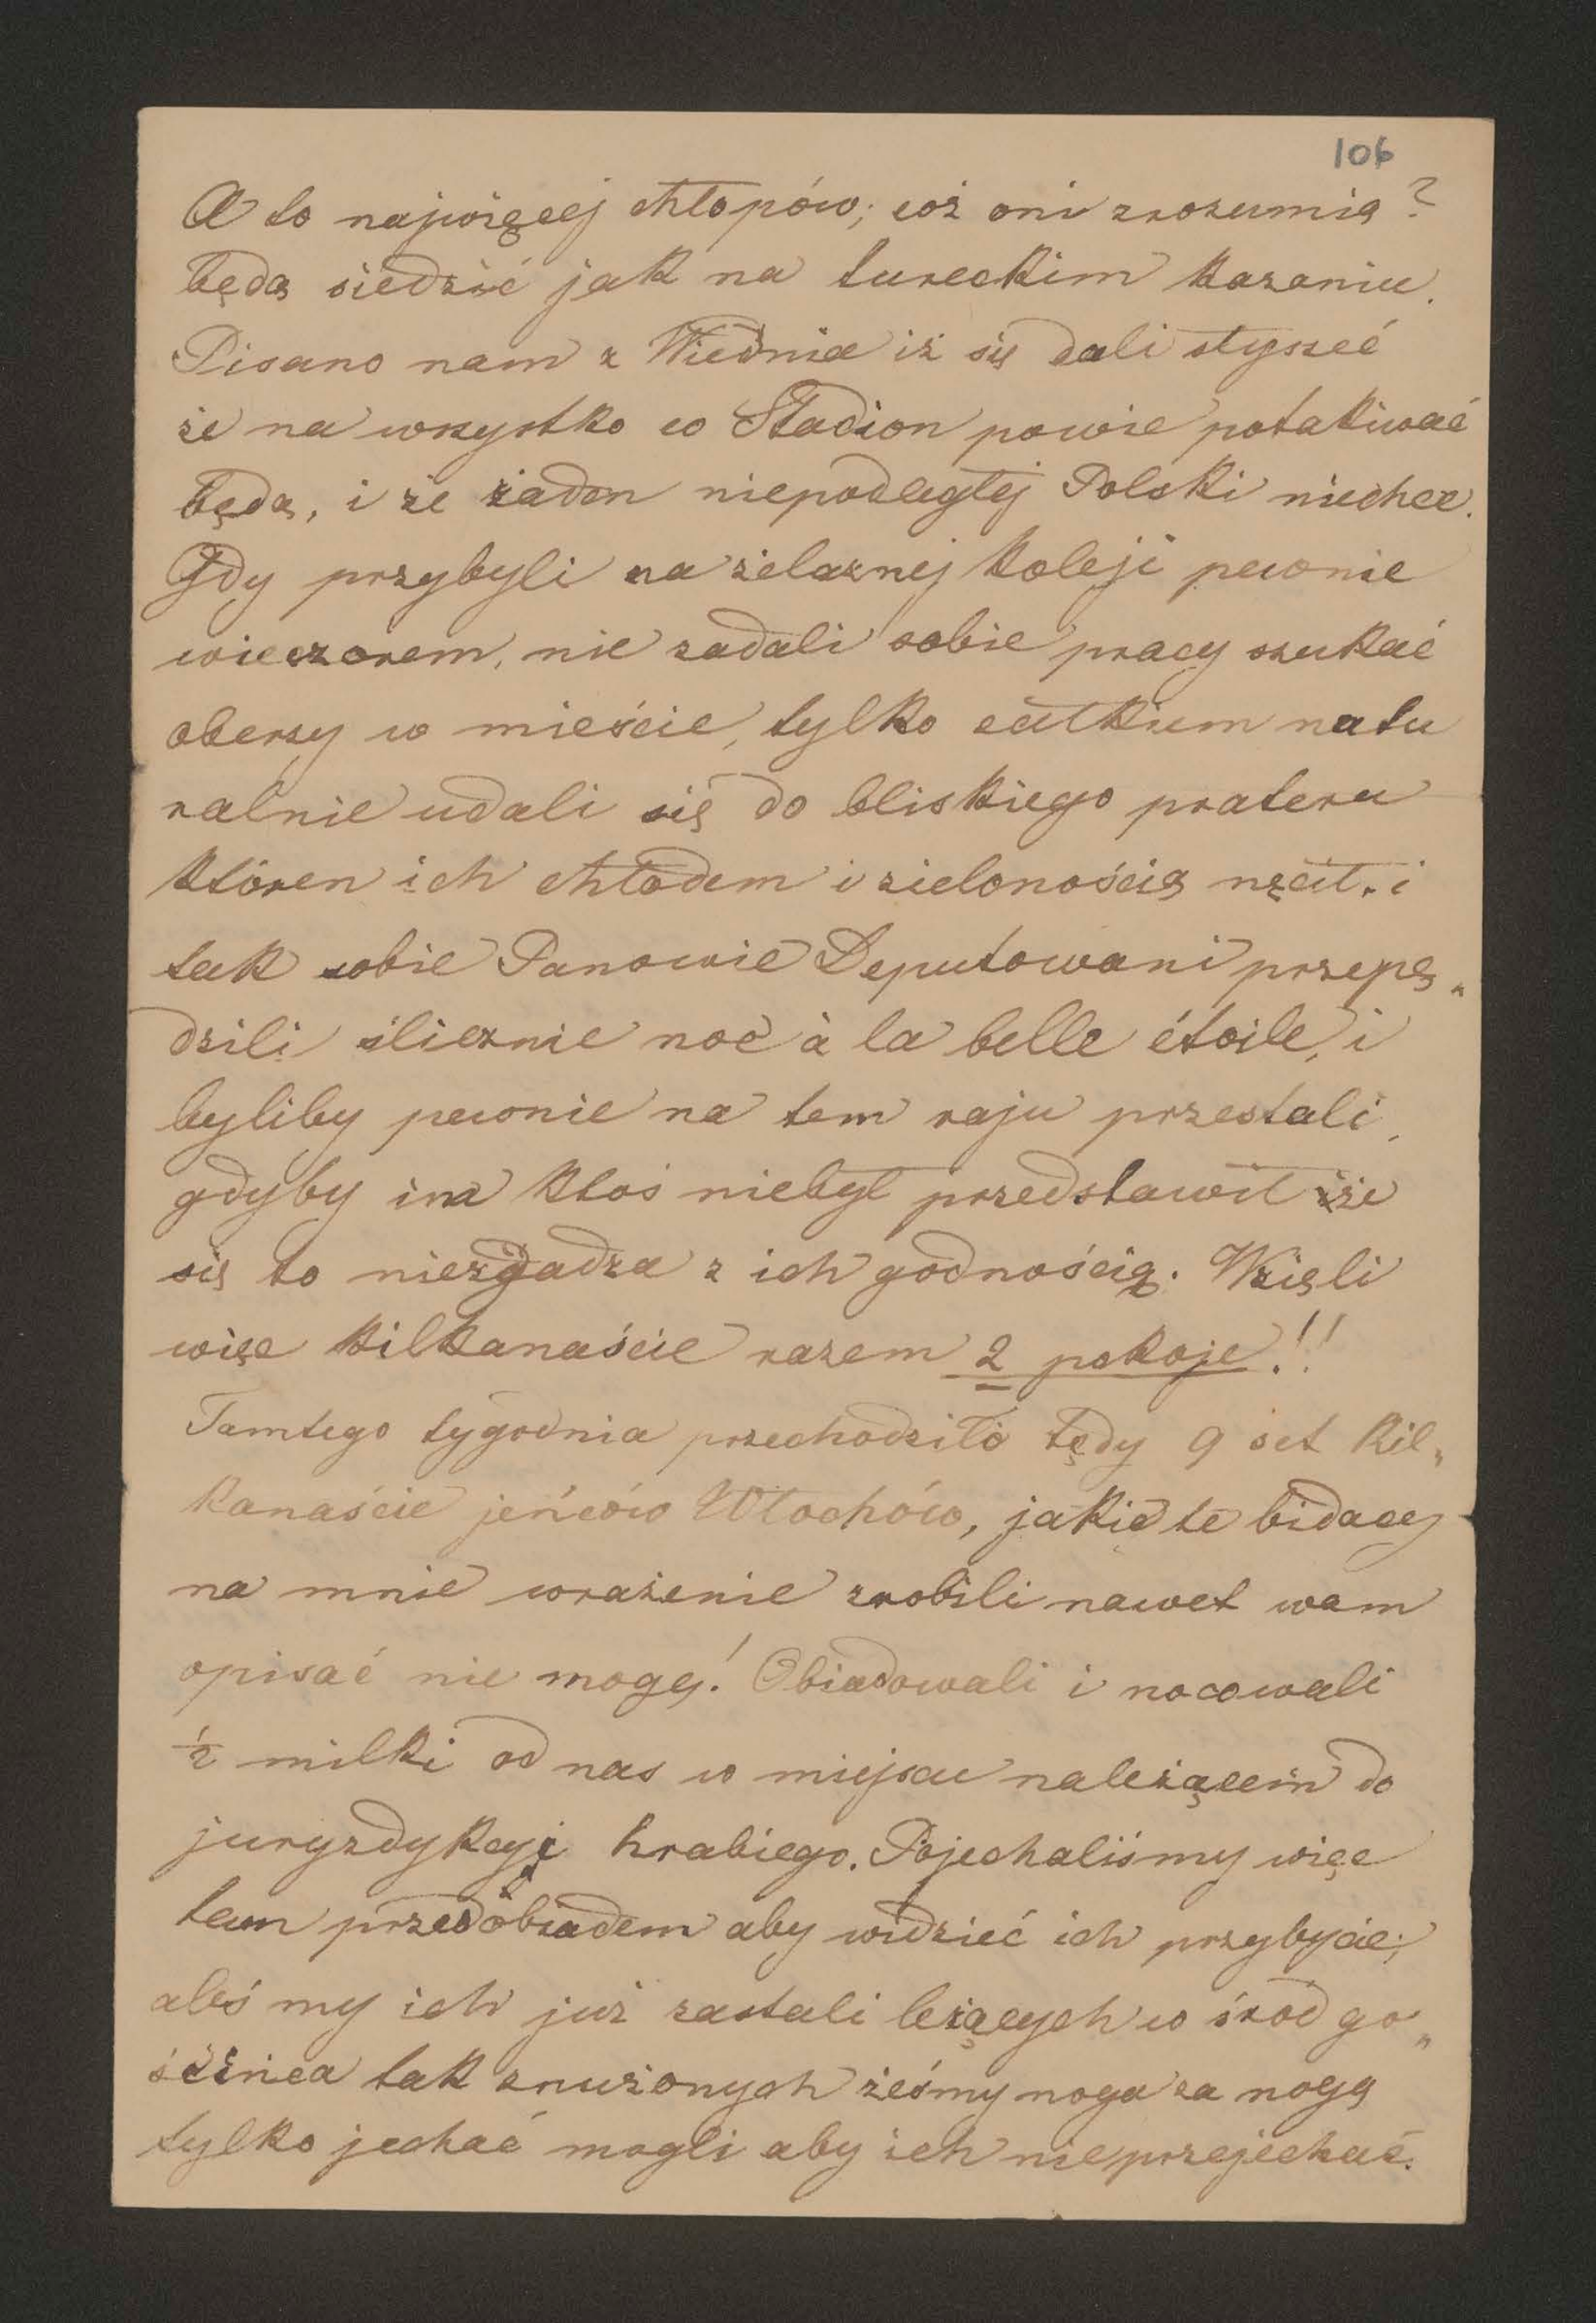 106
A to najwięcej chłopów; coż oni zrozumią?
będą siedzić jak na tureckim kazaniu.
Pisano nam z Wiednia iż się dali słyszeć
że na wszystko co Stadion powie potakiwać
będą, i że żaden niepodległej Polski niechce.
Gdy przybyli na żelaznej koleji pewnie
wieczorem, nie zadali sobie pracy szukać
oberzy w mieście, tylko całkiem natu
ralnie udali się do bliskiego prateru
któren ich chłodem i zielonością nęcił. i
tak sobie Panowie Deputowani przepę„
dzili ślicznie noc à la belle étoile, i
byliby pewnie na tem raju przestali,
gdyby im ktoś niebył przedstawił że
się to niezgadza z ich godnością. Wzięli
więc kilkanaście razem 2 pokoje!!
Tamtego tygodnia przechodziło tędy 9 set kil„
kanaście jeńców Włochów, jakie te bidacy
na mnie wrażenie zrobili nawet wam
opisać nie mogę! Obiadowali i nocowali
½ milki od nas w miejscu należącem do
juryzdykcyi hrabiego. Pojechaliśmy więc
tam przed obiadem aby widzieć ich przybycie;
aleś my ich już zastali leżących w śród go„
ścińca tak znużonych żeśmy noga za nogą
tylko jechać mogli aby ich nieprzejechać.